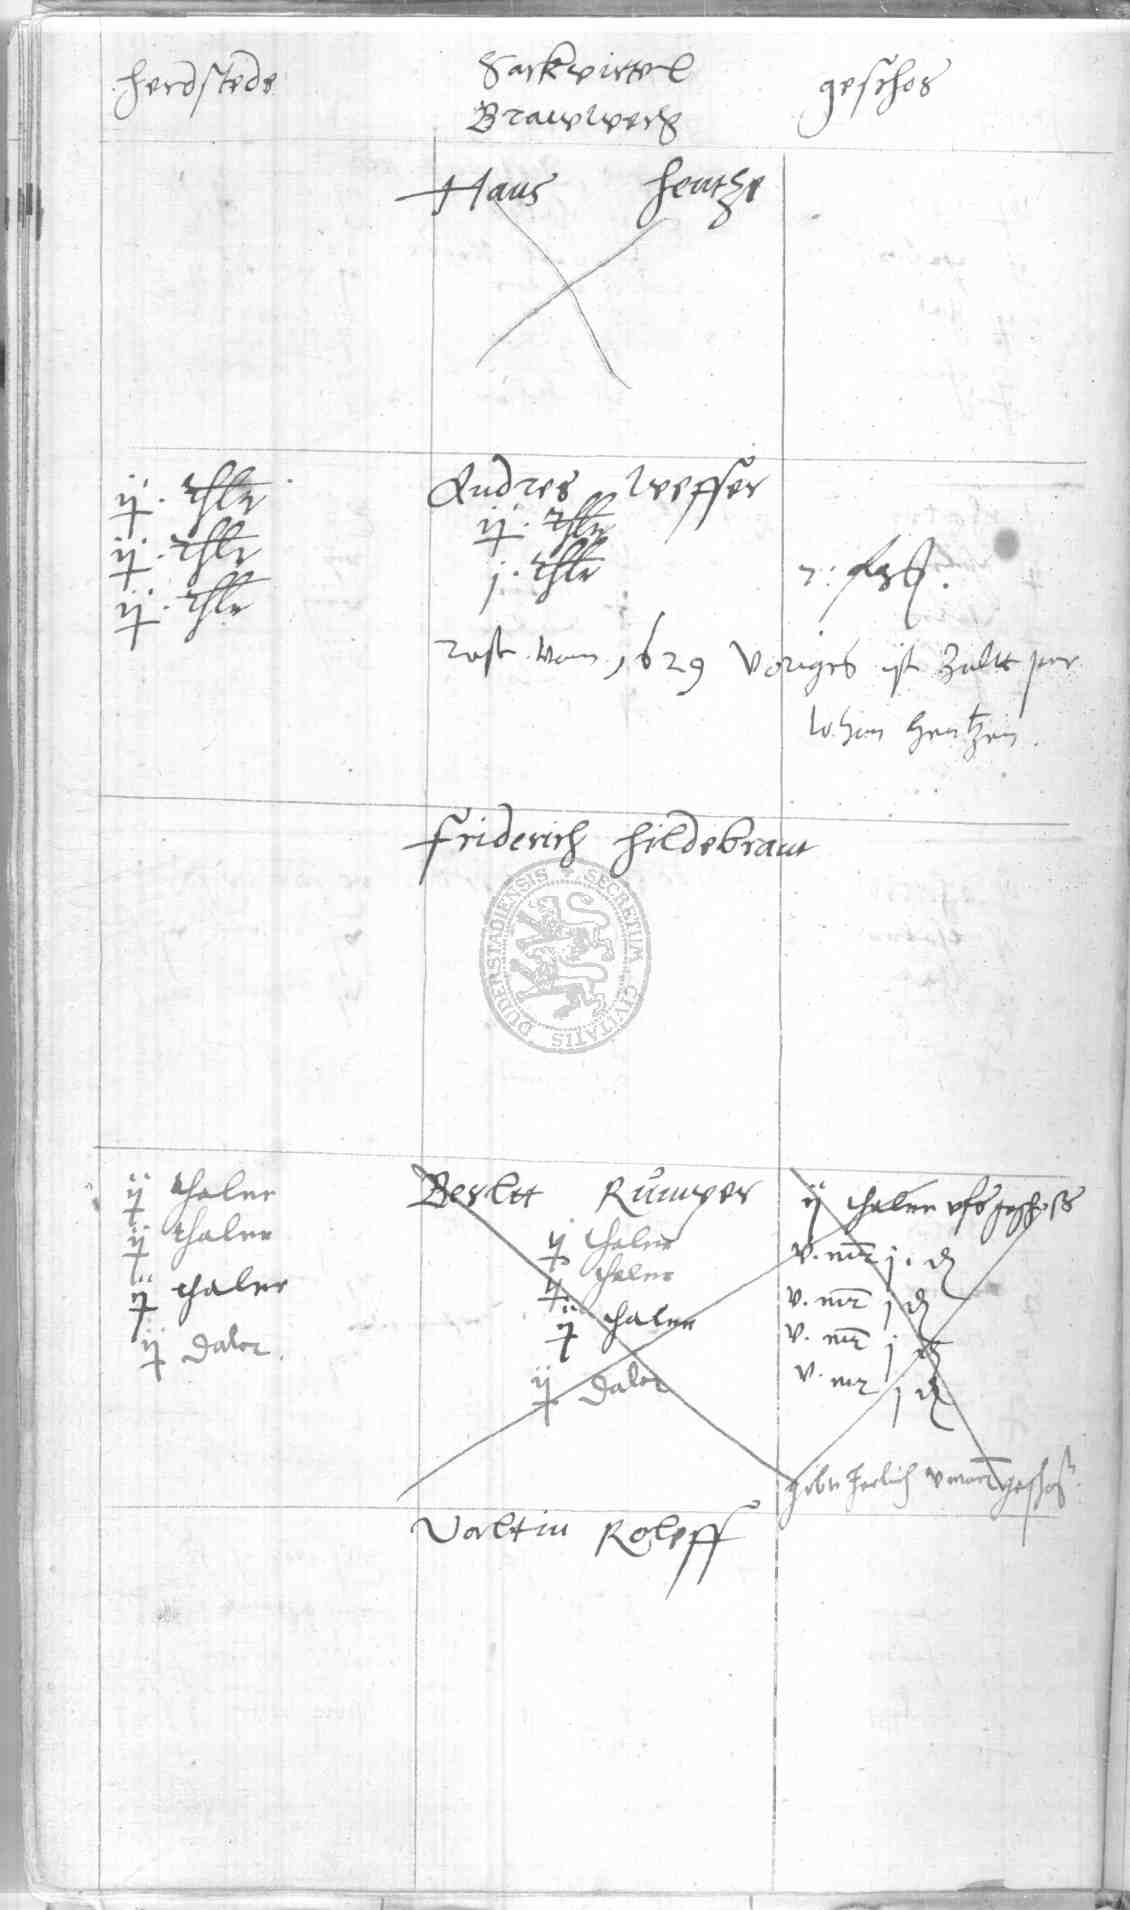 herdstede
Sackvirtel
Brauwerck
geschos
Hans Hentze
ij. thlr
ij. thlr
ij. thlr
Andres Weffer
ij. thlr
j. thlr
rest vom 1629 Voriges ist Zalt per
Johan Hentzen.
Friderich Hildebrant
SECRETUM CIVITATIS DUDERSTADIENSIS
ij thaler
ij thaler
ij thaler
ij Daler
ij thaler
ij thaler
ij thaler
ij Daler
ij thaler vfs geschoss
v. mr j. d
v. mr j d
v. mr j d
v. mr j d
v geschoß
Valtin Roleff